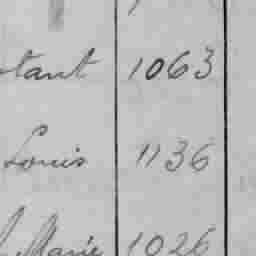 stant 1063
Louis 1136
Marie 1026